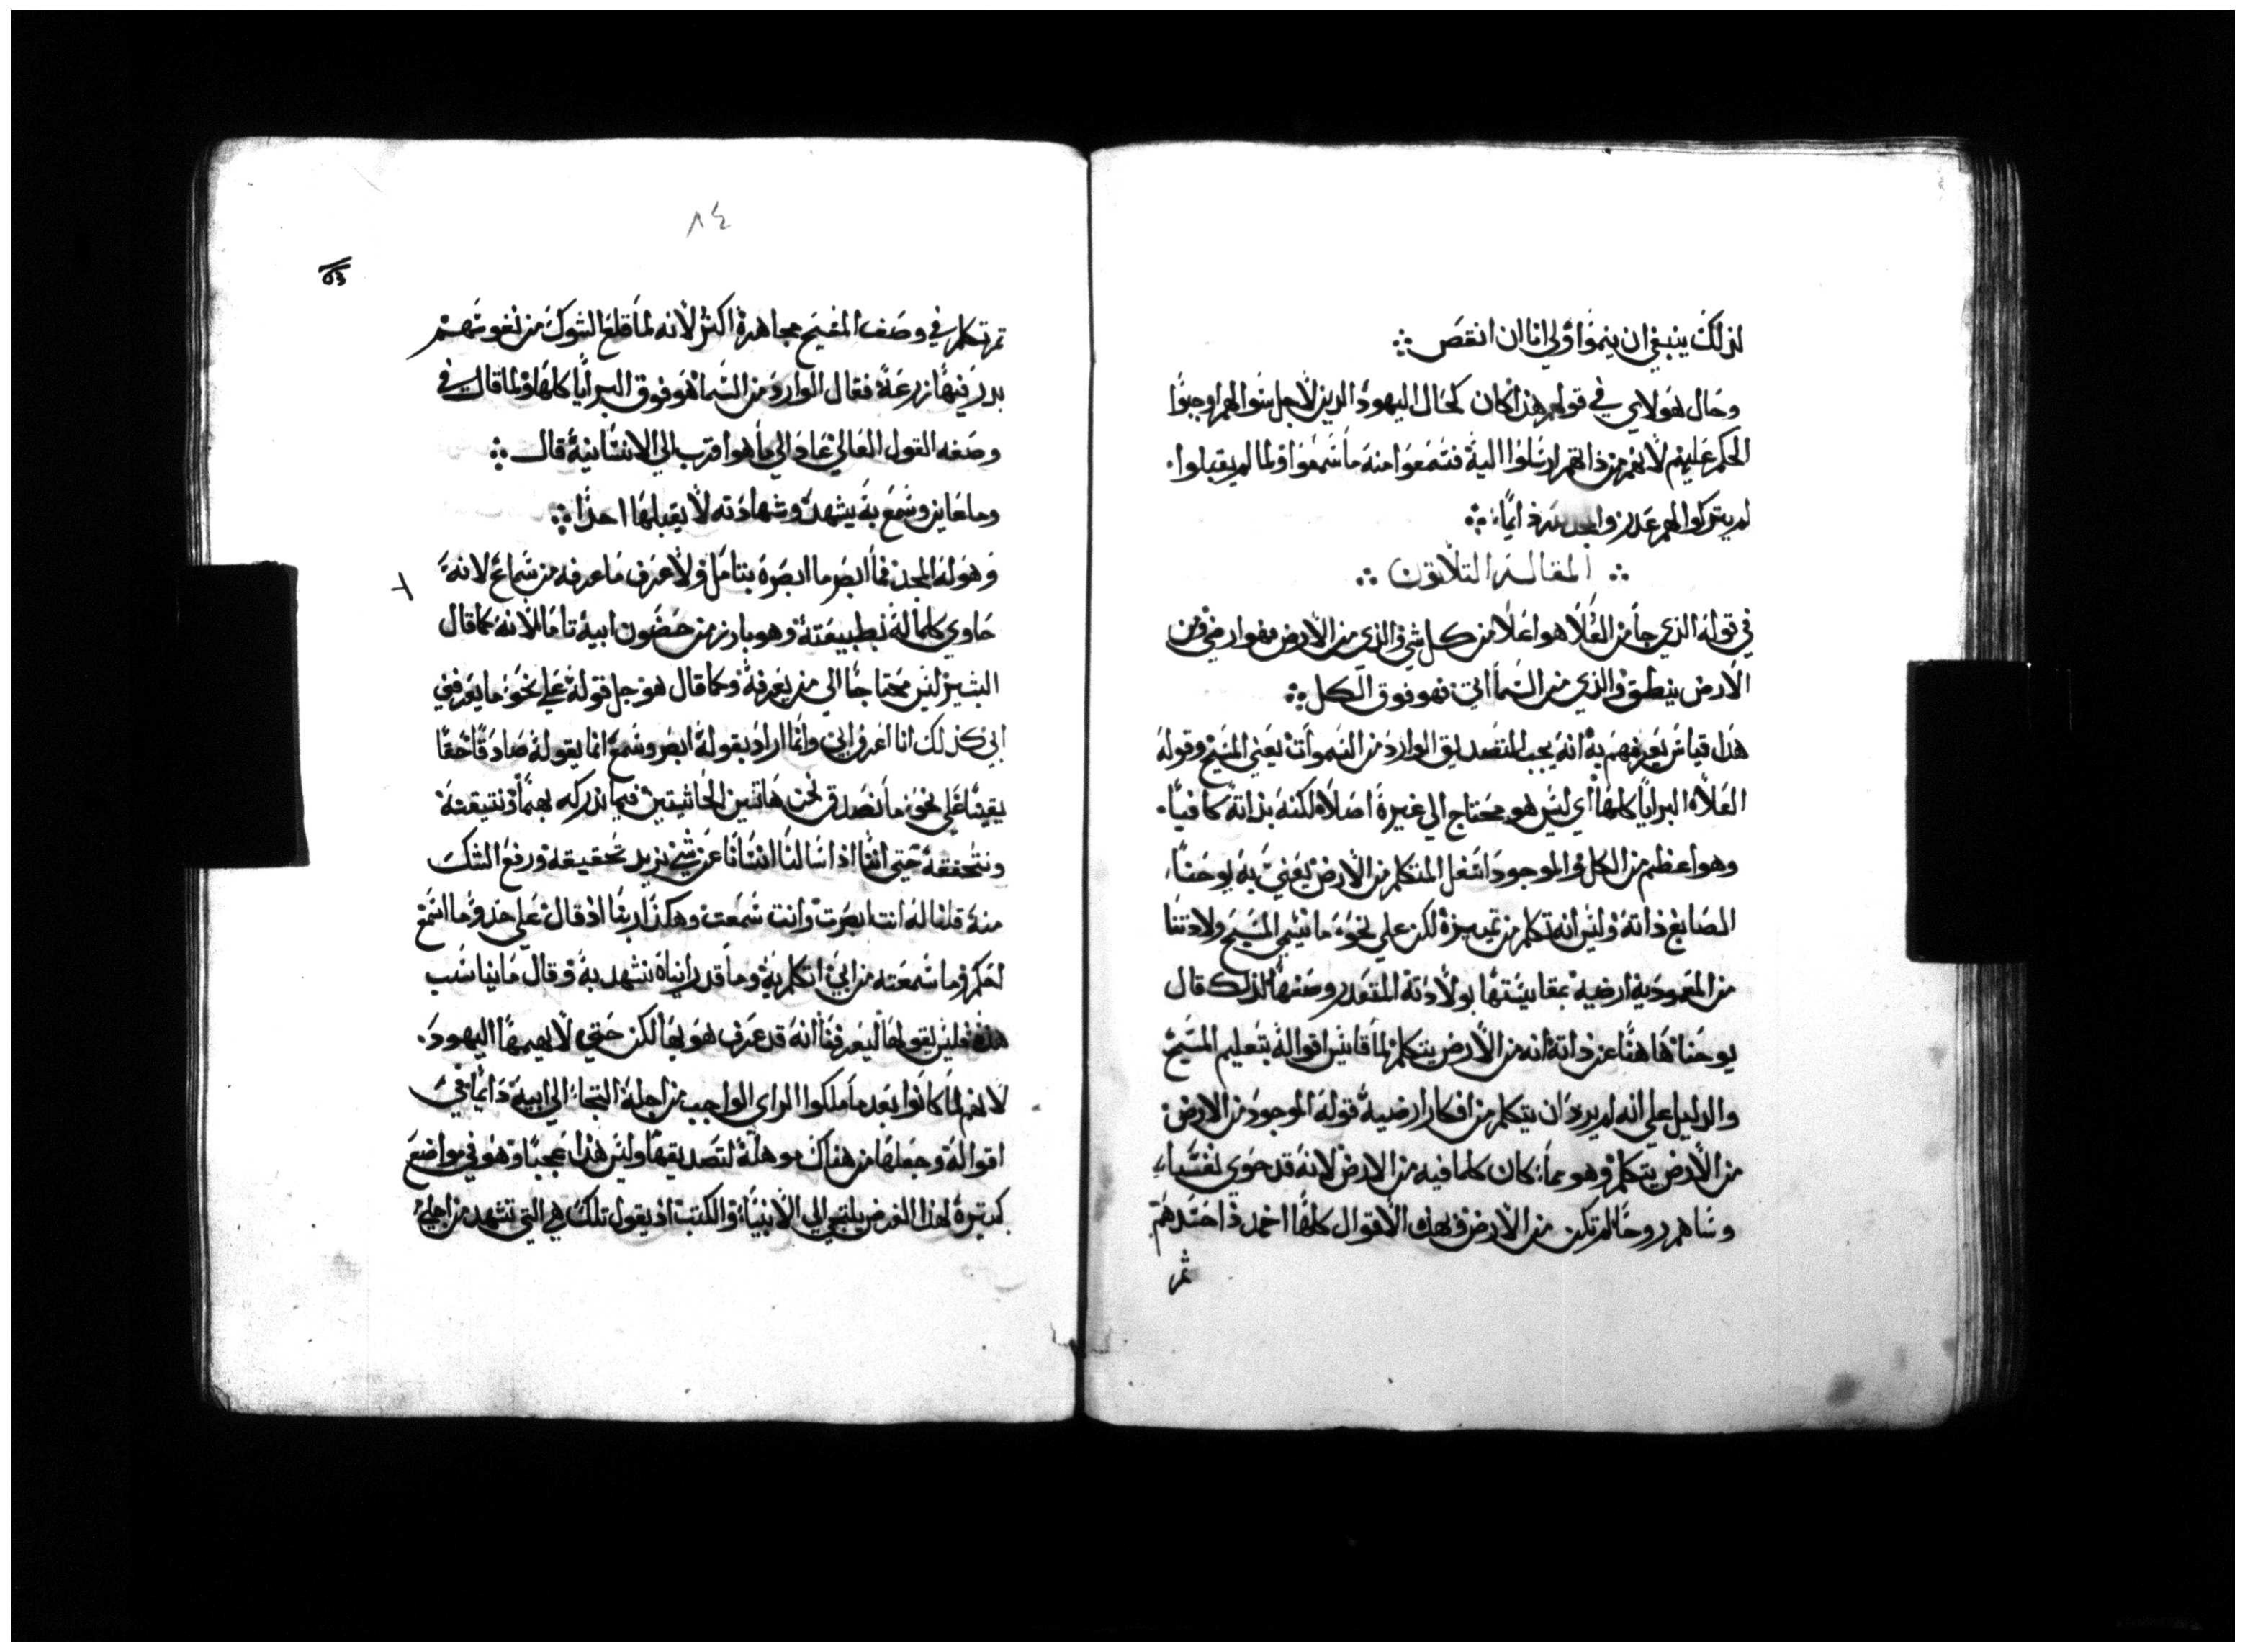 لذلك ينبغي ان ينموا ولي انا ان انقص
وحال هولاي في قولهم هذا كان كحال اليهود الدين لاجل سوالهم اوجبوا
الحكم عليهم لانهم من ذاتهم ارسلوا اليه فسمعوا منه ما سمعوا ولما لم يقبلوا
لم يتركوا لهم عذر
المقاله التلاتون
في قوله الذي جا من العلا هو اعلا من كل شي والذي من الارض فهو ارضي ومن
الارض ينطق والذي من السما اتى فهو فوق الكل
هدا قياس يعرفهم به انه يجب التصديق الوارد من السموات يعني المسيح وقوله
اعلا البرايا كلها اي ليس هو محتاج الي غيره اصلا لكنه بذاته كافيا
وهو اعظم من الكل والموجود اسفل المتكلم من الارض يعني به يوحنا
الصابغ ذاته وليس انه تكلم من تمييزه لكن علي نحو ما يسمي المسيح ولادتنا
من المعموديه ارضيه بمقايستها بولادته المتعدر وصفها لذلك قال
يوحنا هاهنا عن ذاته انه من الارض يتكلم لما قايس اقواله بتعليم المسيح
والدليل علي انه لم يرد ان يتكلم من افكار ارضيه قوله الموجود من الارض
من الارض يتكلم وهو فما كان كلما فيه من الارض لانه قد حوى نفسا
وساهم روحا لم تكن من الارض وبهذه الاقوال كلها اخمد حسدهم
ثم
٨٤
83
ثم تكلم في وصف المسيح مجاهرة اكثر لانه لما قلع الشوك من نفوسهم
بدر فيها زرعه فقال الوارد من السما هو فوق البرايا كلها ولما قال في
وصفه القول العالي عاد الي ما هو اقرب الي الانسانيه قال
وما عاين وسمع به يشهد وشهادته لا يقبلها احدا
وهو له المجد فما ابصر ما ابصره بتامل ولا عرف ما عرفه من سماع لانه
حاوي كلما له بطبيعته وهو بارز من حضون ابيه تاما لانه كما قال
البشير ليس محتاجا الي من يعرفه وكما قال هو جل قوله على نحو ما يعرفني
ابي كذلك انا اعرف ابي وانما اراد بقوله ابصر وسمع انما يقوله صادقا حقا
يقينا علي نحو ما نصدق نحن هاتين الحاستين فيما ندركه بهما ونتيقنه
ونتحققه حتي اننا اذا سالنا انسانا عن شي نريد تحقيقه ورفع الشك
منه قلنا له انت ابصرت وانت سمعت وهكذا ربنا اذ قال علي حذو ما اسمع
احكم وما سمعته من ابي اتكلم به وما قد رايناه نشهد به وقال ما يناسب
هذه فليس يقولها ليعرفنا انه قد عرف هو بها لكن حتي لا يهيمها اليهود
لانهم لما كانوا بعد ما ملكوا الراي الواجب من اجله التجا الي ابيه دايما في
اقواله وجعلها من هناك موهله لتصديقها وليس هدا عجيبا وهو في مواضع
كتيرة لهذا الغرض يلتجي الي الانبيا والكتب اذ يقول تلك هي التي تشهد من اجلي